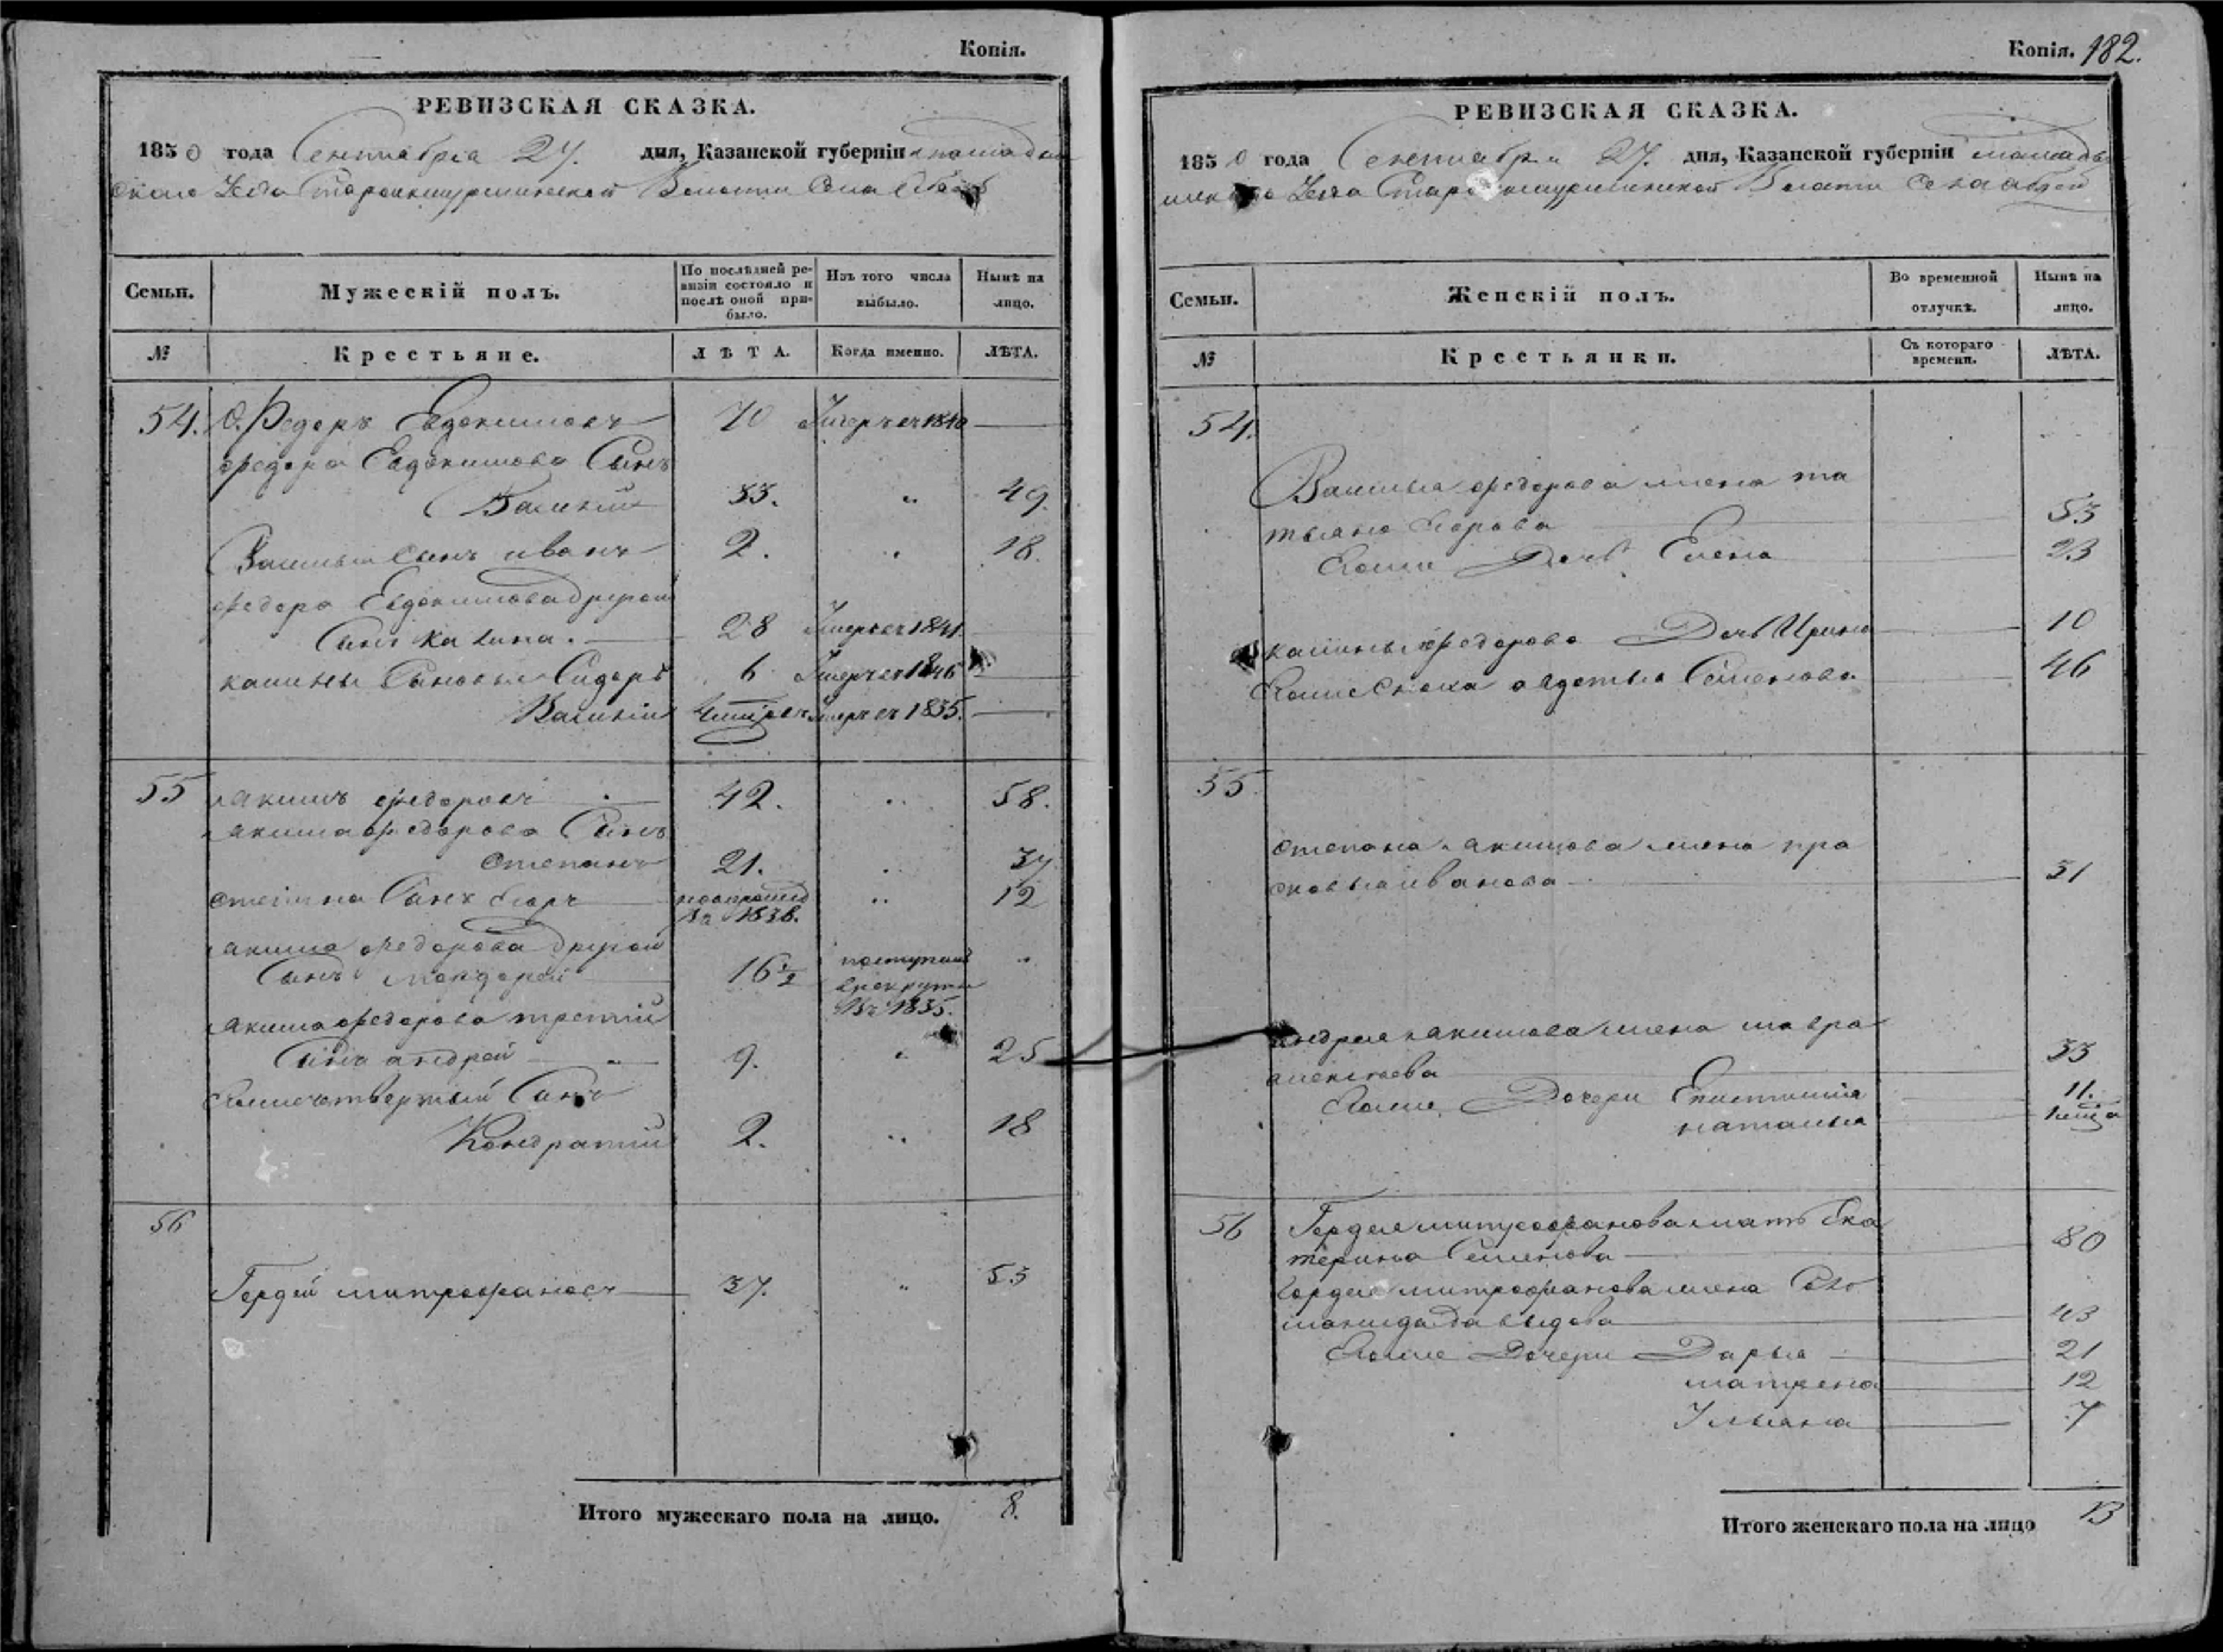 Копія.
РЕВИЗСКАЯ СКАЗКА.
1850 года Сентября 27. дня, Казанской губерніи
Волости Села
Семьи.
Мужескій полъ.
По послѣдней ревизіи состояло и послѣ оной прибыло.
Изъ того числа выбыло.
Нынѣ на лицо.
№
Крестьяне.
ЛѢТА.
Когда именно.
ЛѢТА.
54. Федоръ Евдокимовъ 70 Умеръ въ 1840
Федора Евдокимова Сынъ
Василий 33. " 49.
Васильи Сынъ иванъ 2. " 18.
Федора Евдокимова другой
Сынъ калина. 28 Умеръ въ 1841
калины Сыновья Сидоръ 6 Умеръ въ 1846
Василий Умеръ въ 1835.
55 акимъ федоровъ 42. " 58.
акима федорова Сынъ
Степанъ 21. " 37
степана Сынъ Егоръ 12
въ 1838.
акима федорова другой
Сынъ 16½ поступилъ
в рекруты
въ 1835.
акима федорова третий
Сынъ андрей 9. " 25
Егоже четвертый Сынъ
Кондратий 2. " 18
56
Гордей митрофановъ 37. " 53
Итого мужескаго пола на лицо. 8.
Копія. 182.
РЕВИЗСКАЯ СКАЗКА.
1850 года Сентября 27. дня, Казанской губерніи
Волости Села
Семьи.
Женскій полъ.
Во временной отлучкѣ.
Нынѣ на лицо.
№
Крестьянки.
Съ котораго времени.
ЛѢТА.
54.
Василья федорова жена та
тьяна Егорова 53
Егоже Дочь Елена 23
калины федорова Дочь Ирина 10
Егоже Сноха авдотья Семенова 46
55.
степана акимова жена пра
сковья иванова 31
андрея акимова жена мавра
алексеева 33
Егоже Дочери Епистимия 11.
наталья
56 Гордея митрофанова мать Ека
терина Семенова 80
Гордея митрофанова жена Со
ломанида давыдова 43
Егоже Дочери Дарья 21
матрена 12
Ульяна 7
Итого женскаго пола на лицо 13